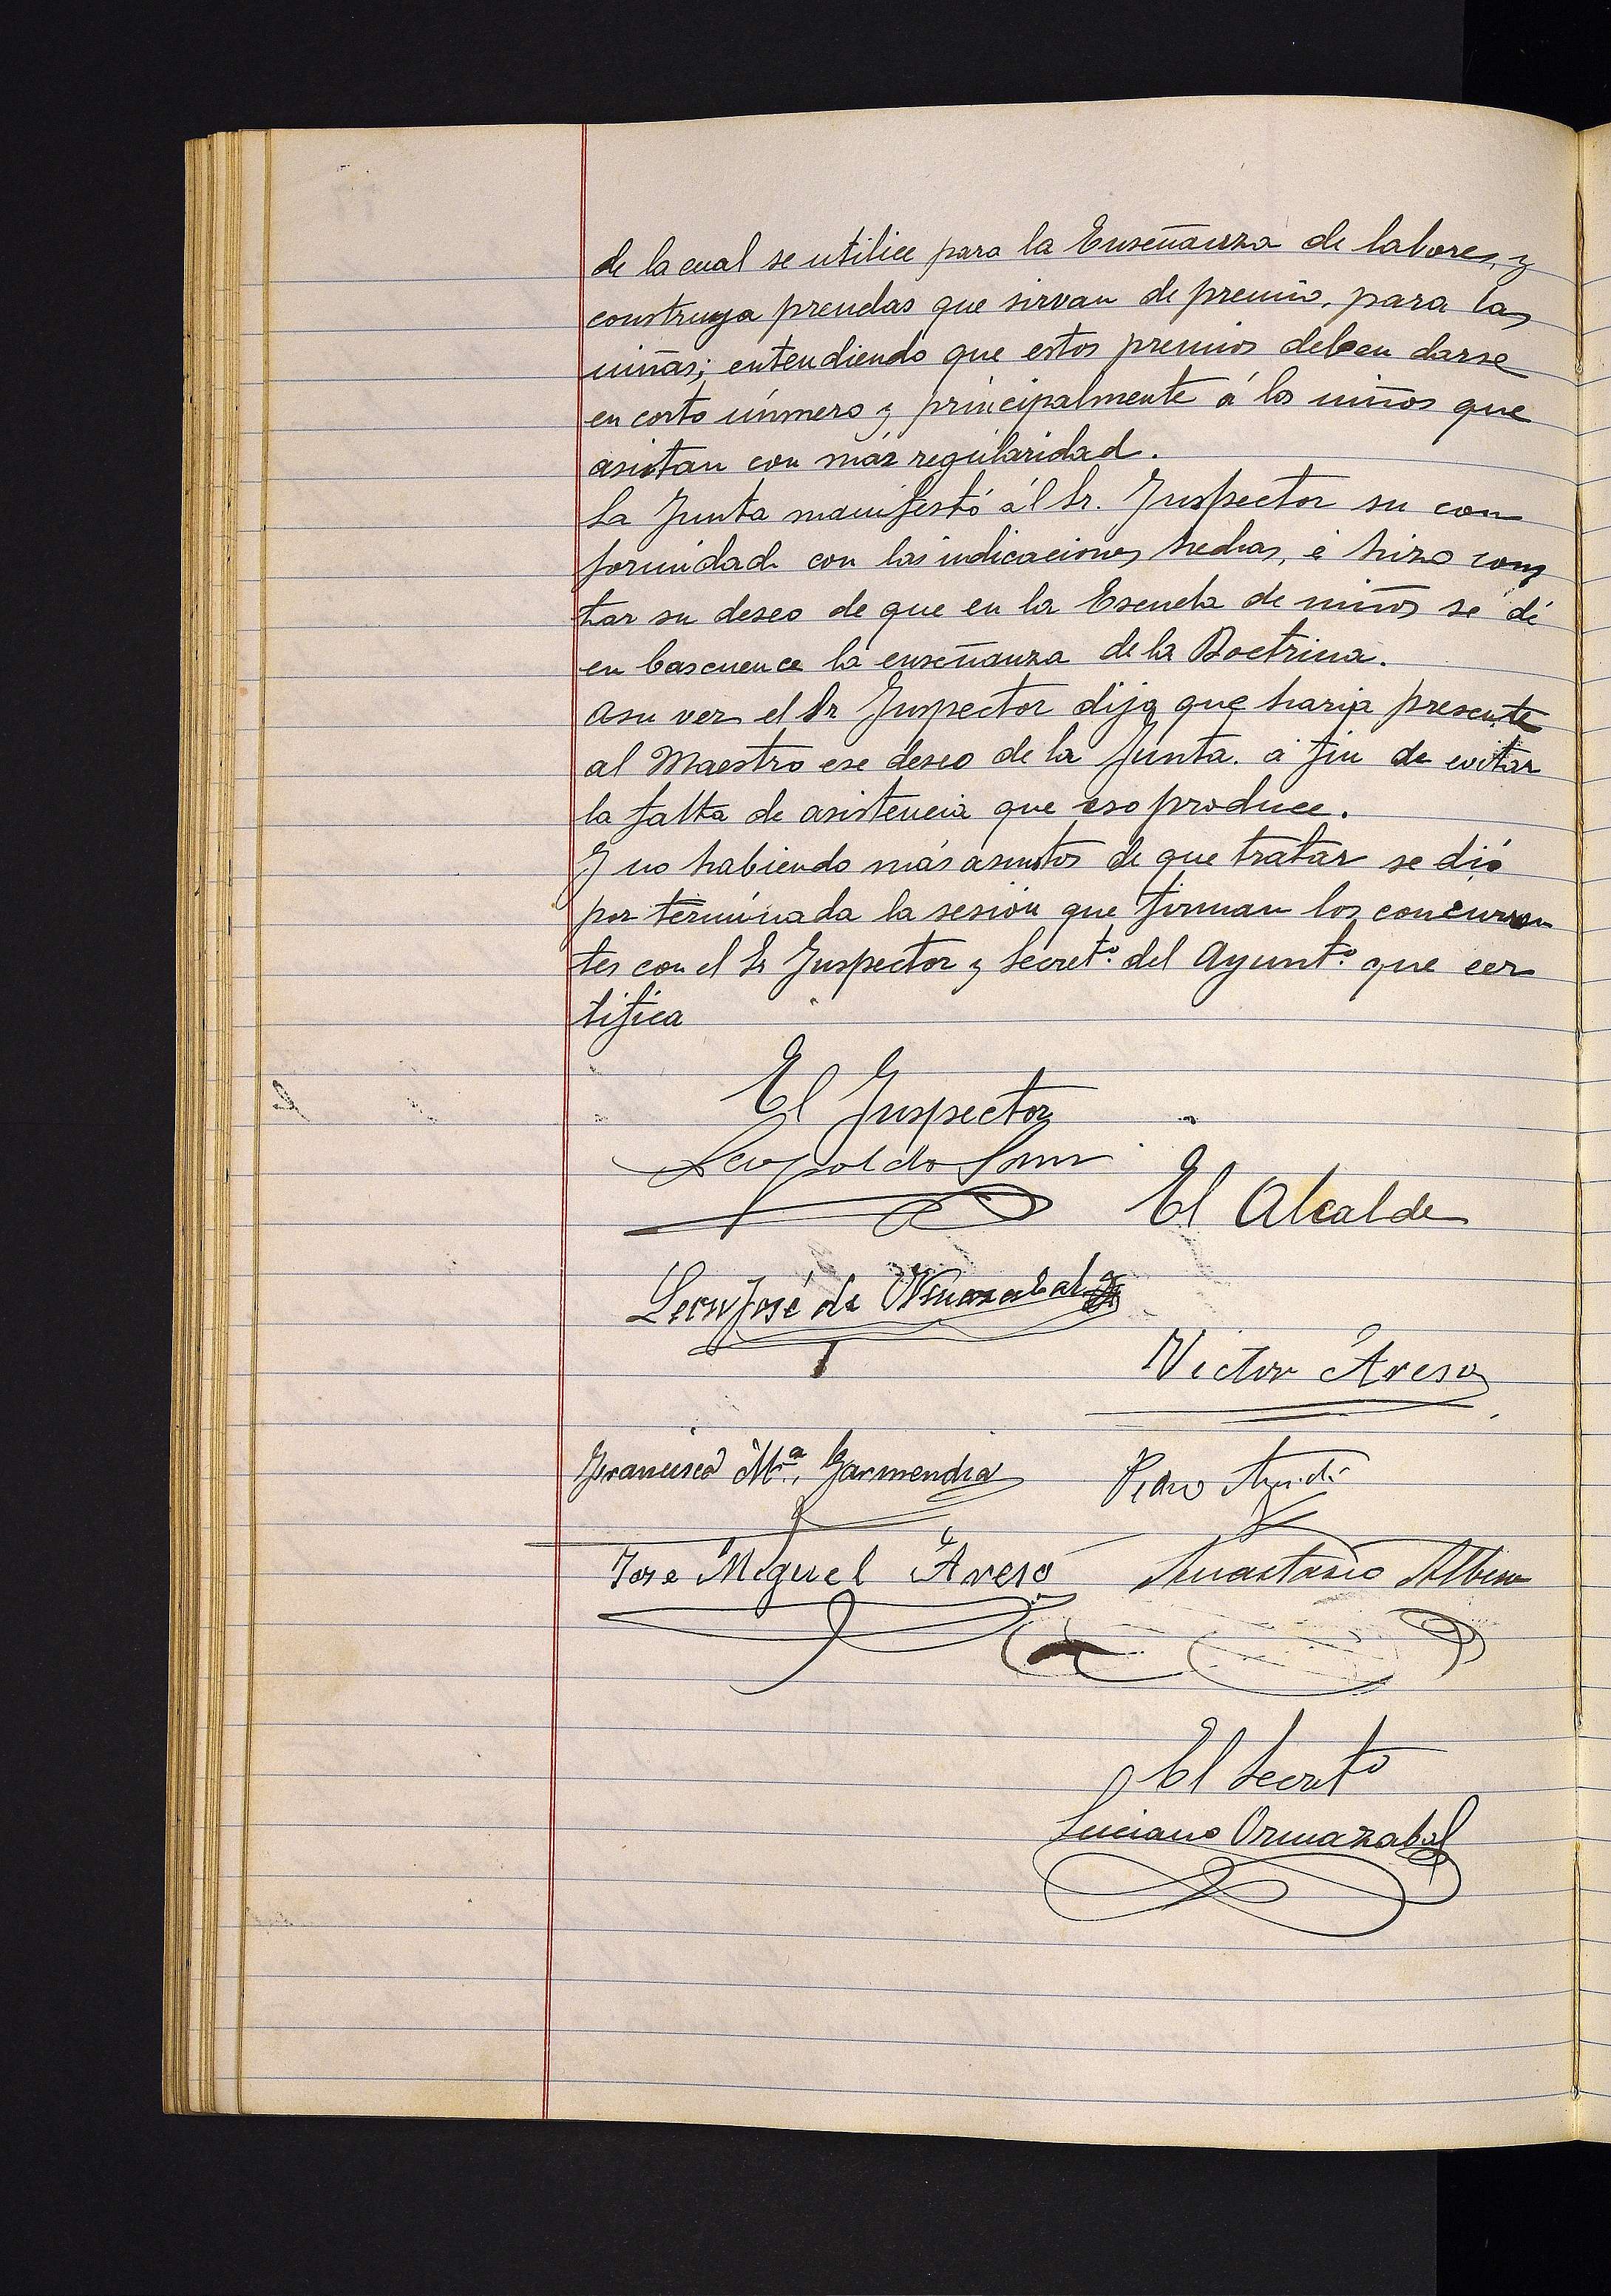 de la cual se utilice para la Enseñanza de labores, y
construya prendas que sirvan de premio, para las
niñas; entendiendo que estos premios deben darse
en corto número y principalmente á los niños que
asistan con más regularidad.
La Junta manifestó ál Sr. Inspector su con
formidad con las indicaciones hechas, é hizo cons
tar su deseo de que en la Escuela de niños se dé
en bascuence la enseñanza de la Doctrina.
Asu vez el Sr Inspector dijo que haria presente
al Maestro ese deseo de la Junta. á fin de evitar
la falta de asistencia que eso produce.
Y no habiendo más asuntos de que tratar se dió
por terminada la sesión que firman los concurren
tes con el Sr Inspector y Secretº del Ayuntº que cer
tifica
El Inspector
Leopoldo
El Alcalde
León José de Ormazabal
Victor Areso
Francisco Mª Garmendia
Pedro
Jose Miguel Areso
Anastasio Albisu
El Secretº
Luciano Ormazabal